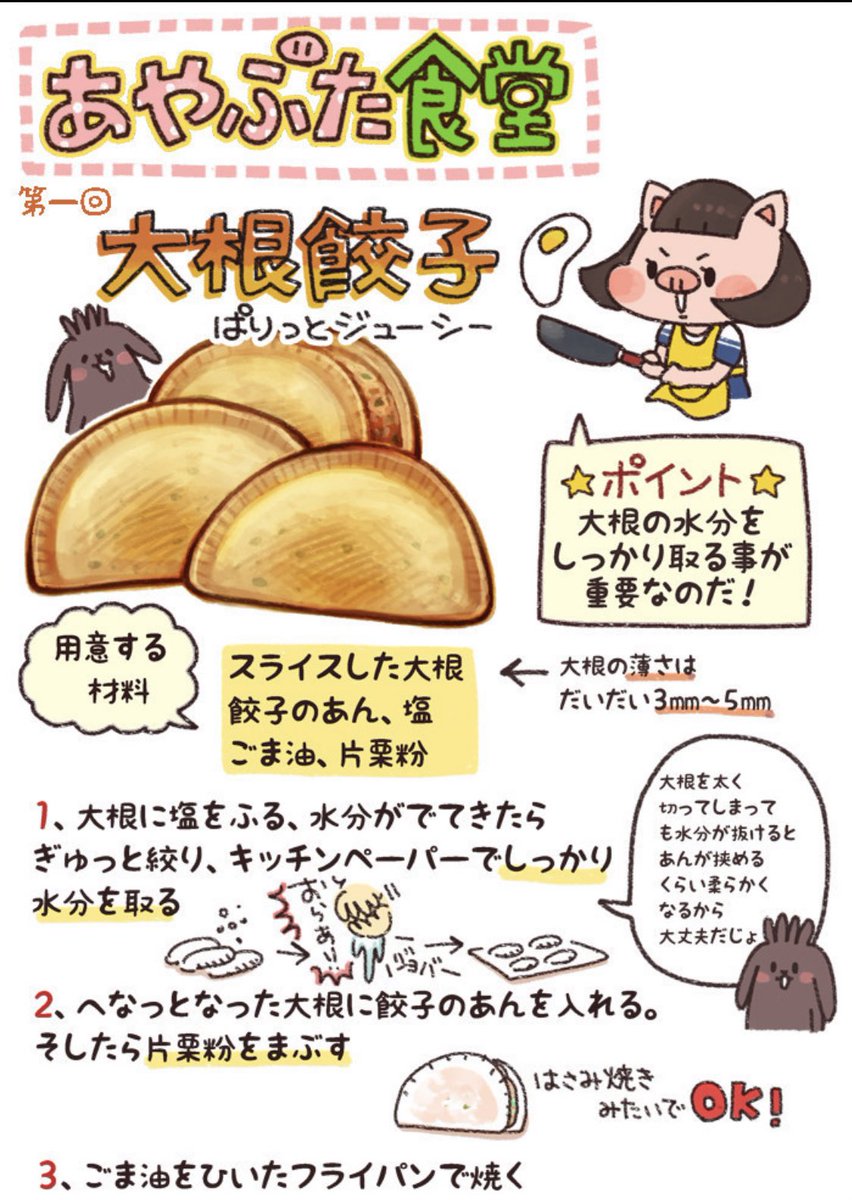 あやぶた食堂
第一回
大根餃子
ぱりっとジューシー
☆ポイント☆
大根の水分を
しっかり取る事が
重要なのだ!
用意する
材料
スライスした大根
餃子のあん、塩
ごま油、片栗粉
← 大根の薄さは
だいだい3mm〜5mm
1、大根に塩をふる、水分がでてきたら
ぎゅっと絞り、キッチンペーパーでしっかり
水分を取る
大根を太く
切ってしまって
も水分が抜けると
あんが挟める
くらい柔らかく
なるから
大丈夫だじょ
おらあ!!
ジョバー
2、へなっとなった大根に餃子のあんを入れる。
そしたら片栗粉をまぶす
はさみ焼き
みたいでOK!
3、ごま油をひいたフライパンで焼く